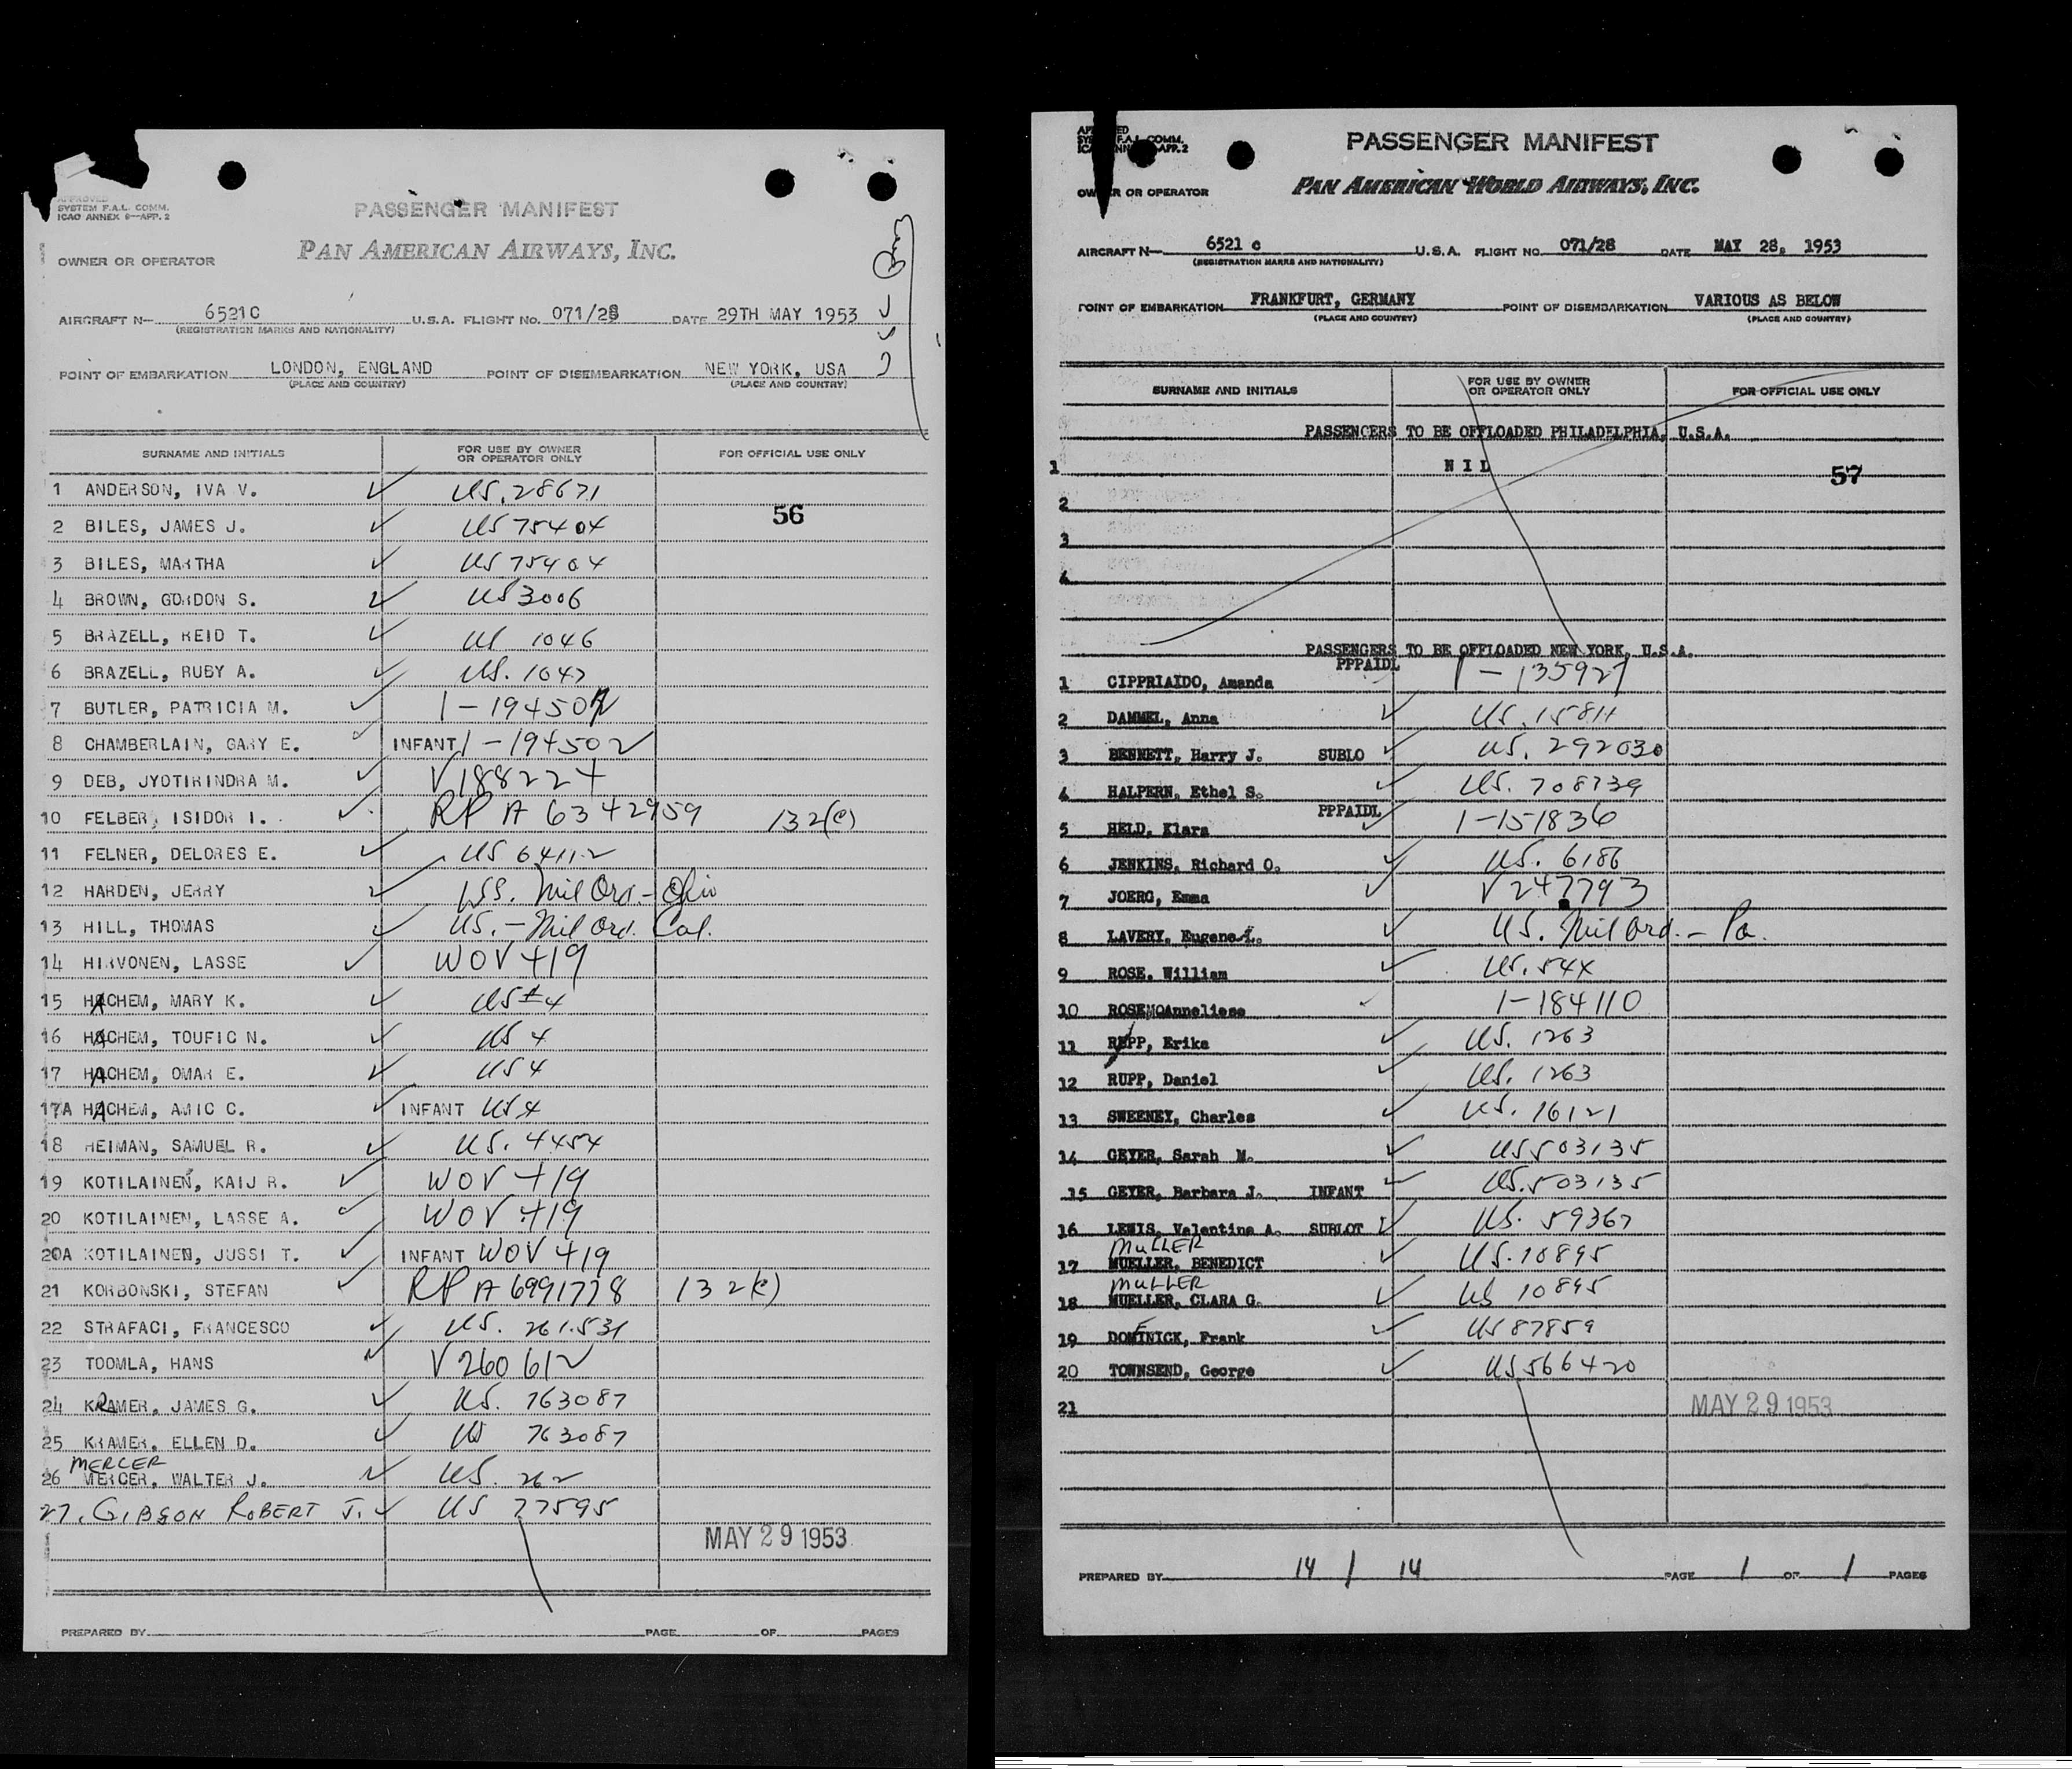 APPROVED
SYSTEM F.A.L. COMM.
ICAO ANNEX 9—APP. 2
PASSENGER MANIFEST
PAN AMERICAN AIRWAYS, INC.
OWNER OR OPERATOR
AIRCRAFT N— 6521C U.S.A. FLIGHT NO. 071/28 DATE 29TH MAY 1953
(REGISTRATION MARKS AND NATIONALITY)
POINT OF EMBARKATION LONDON, ENGLAND POINT OF DISEMBARKATION NEW YORK, USA
(PLACE AND COUNTRY) (PLACE AND COUNTRY)
SURNAME AND INITIALS FOR USE BY OWNER OR OPERATOR ONLY FOR OFFICIAL USE ONLY
1 ANDERSON, IVA V. US. 28671
56
2 BILES, JAMES J. US 75404
3 BILES, MARTHA US 75404
4 BROWN, GORDON S. US 3006
5 BRAZELL, REID T. US 1046
6 BRAZELL, RUBY A. US. 1047
7 BUTLER, PATRICIA M. 1-194502
8 CHAMBERLAIN, GARY E. INFANT 1-194502
9 DEB, JYOTIRINDRA M. V188224
10 FELBER, ISIDOR I. RP A 6342959 132(e)
11 FELNER, DELORES E. US 64112
12 HARDEN, JERRY US. Mil Ord.- Ohio
13 HILL, THOMAS US.- Mil Ord. Cal.
14 HIRVONEN, LASSE WOV 419
15 HACHEM, MARY K. US 4
16 HACHEM, TOUFIC N. US 4
17 HACHEM, OMAR E. US 4
17A HACHEM, AMIC C. INFANT US 4
18 HEIMAN, SAMUEL R. US. 4454
19 KOTILAINEN, KAIJ R. WOV 419
20 KOTILAINEN, LASSE A. WOV 419
20A KOTILAINEN, JUSSI T. INFANT WOV 419
21 KORBONSKI, STEFAN RP A 6991778 132(e)
22 STRAFACI, FRANCESCO US. 261531
23 TOOMLA, HANS V 260612
24 KRAMER, JAMES G. US. 763087
25 KRAMER, ELLEN D. US 763087
MERCER
26 MERCER, WALTER J. US. 262
27. GIBSON ROBERT J. US 77595
MAY 29 1953
PREPARED BY PAGE OF PAGES
APPROVED
SYSTEM F.A.L. COMM.
ICAO ANNEX 9—APP. 2
PASSENGER MANIFEST
PAN AMERICAN WORLD AIRWAYS, INC.
OWNER OR OPERATOR
AIRCRAFT N— 6521 c U.S.A. FLIGHT NO. 071/28 DATE MAY 28, 1953
(REGISTRATION MARKS AND NATIONALITY)
POINT OF EMBARKATION FRANKFURT, GERMANY POINT OF DISEMBARKATION VARIOUS AS BELOW
(PLACE AND COUNTRY) (PLACE AND COUNTRY)
SURNAME AND INITIALS FOR USE BY OWNER OR OPERATOR ONLY FOR OFFICIAL USE ONLY
PASSENGERS TO BE OFFLOADED PHILADELPHIA, U.S.A.
1 N I L 57
2
3
4
PASSENGERS TO BE OFFLOADED NEW YORK, U.S.A.
1 CIPPRIAIDO, Amanda PPPAIDL 1-135927
2 DAMMEL, Anna US. 15811
3 BENNETT, Harry J. SUBLO US. 292030
4 HALPERN, Ethel S. US. 708739
5 HELD, Klara PPPAIDL 1-151836
6 JENKINS, Richard O. US. 6186
7 JOERG, Emma V247793
8 LAVERY, Eugene L. US. Mil Ord.- Pa.
9 ROSE, William US. 544
10 ROSEMOAnneliese 1-184110
11 RUPP, Erika US. 1263
12 RUPP, Daniel US. 1263
13 SWEENEY, Charles US. 16121
14 GEYER, Sarah M. US 503135
15 GEYER, Barbara J. INFANT US. 503135
16 LEWIS, Valentine A. SUBLOT US. 59367
MULLER
17 MUELLER, BENEDICT US. 10895
MULLER
18 MUELLER, CLARA G. US 10895
19 DOMENICK, Frank US 87859
20 TOWNSEND, George US 566420
21 MAY 29 1953
PREPARED BY 14 / 14 PAGE 1 OF 1 PAGES